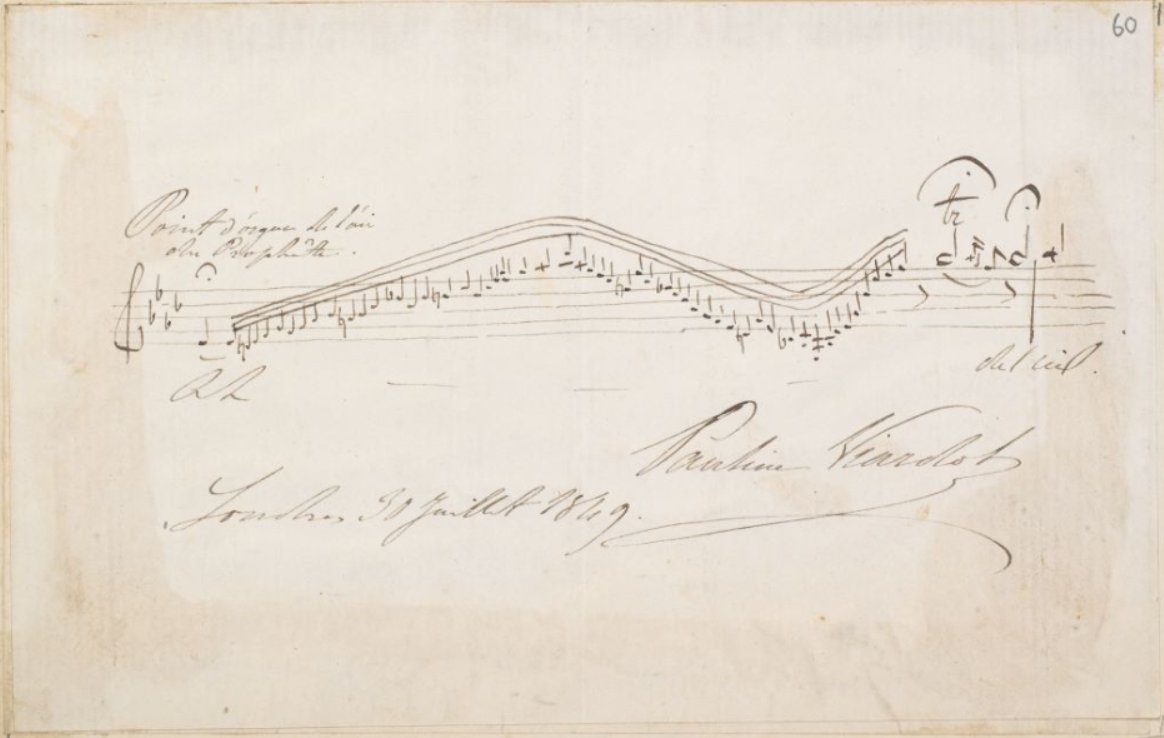 60
Point d'orgue de l'air
du Prophète.
tr
Ah
du ciel.
Pauline Viardot
Londres 30 Juillet 1849.